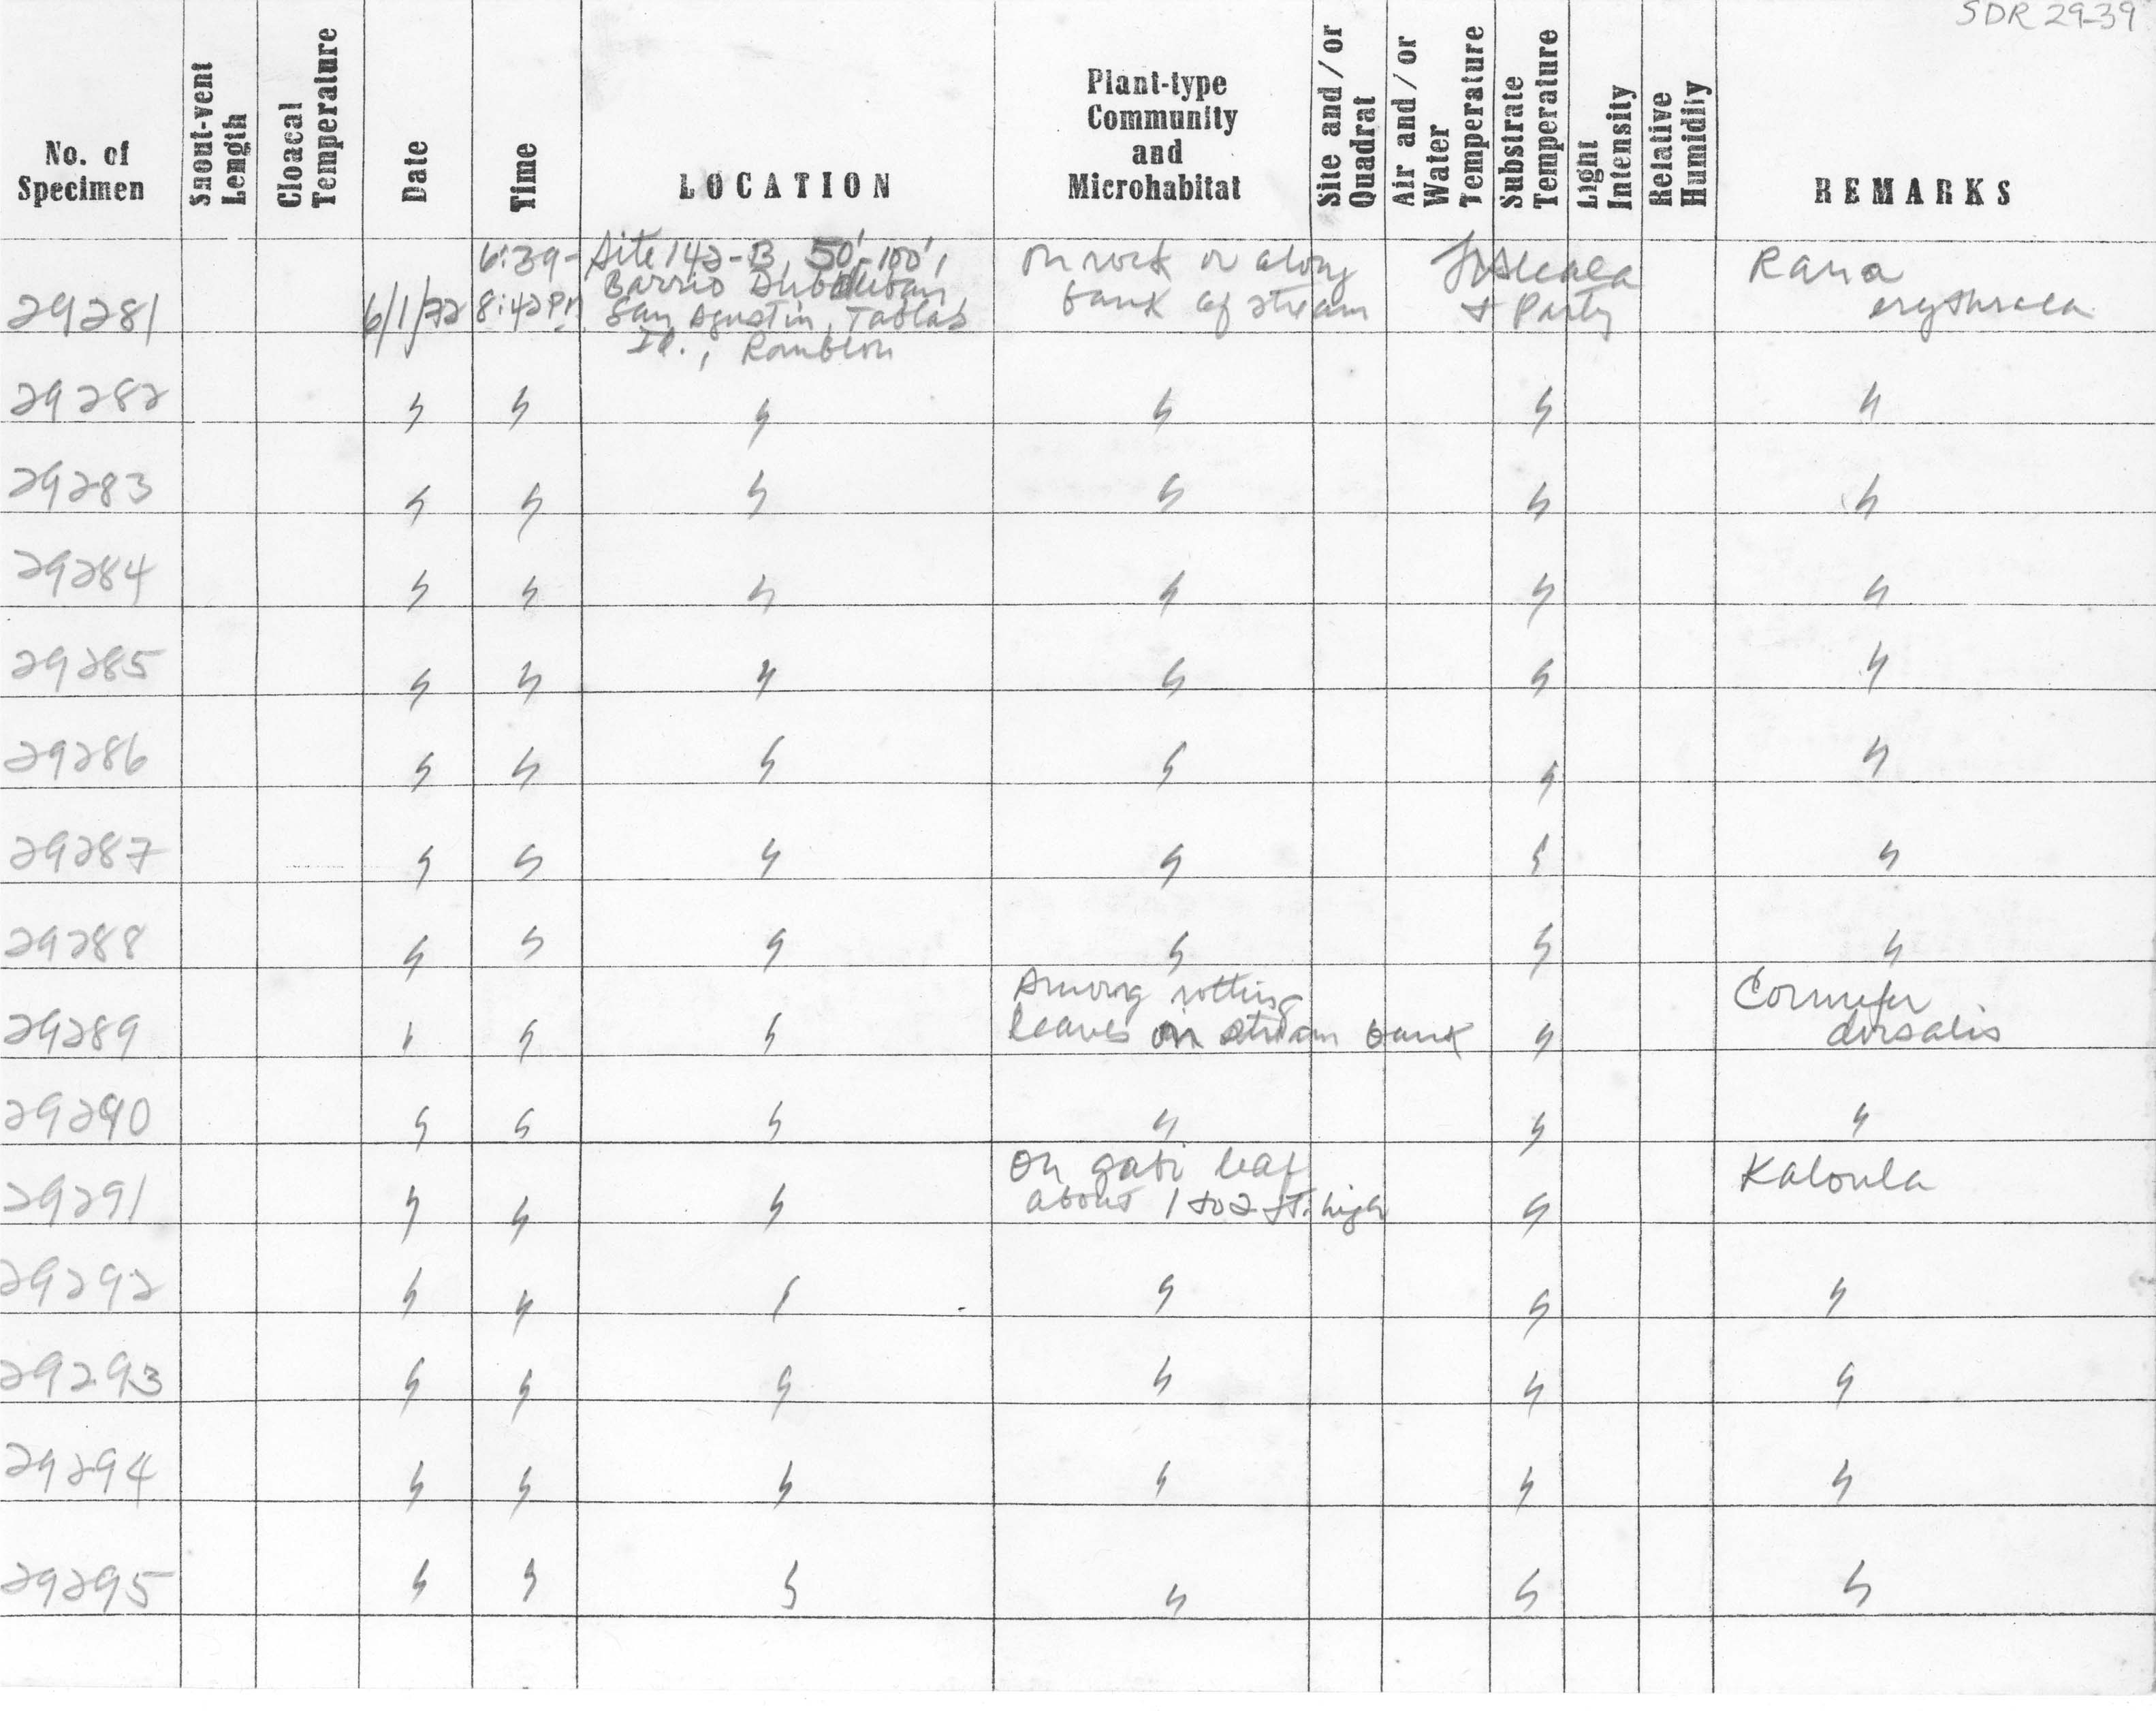 SDR 29-39
No. of Specimen
Snout-vent Length
Cloacal Temperature
Date
Time
LOCATION
Plant-type Community and Microhabitat
Site and/or Quadrat
Air and/or Water Temperature
Substrate Temperature
Light Intensity
Relative Humidity
REMARKS
29281 6/1/72 6:39- 8:42 PM Site 142-B, 50'-100', Barrio San Agustin, Tablas Id., Romblon On rock or along bank of stream Alcala & Party Rana erythraea
29282 " " " " " "
29283 " " " " " "
29284 " " " " " "
29285 " " " " " "
29286 " " " " " "
29287 " " " " " "
29288 " " " " " "
29289 " " " Among rotting leaves on stream bank " Cornufer dorsalis
29290 " " " " " "
29291 " " " On gabi leaf about 1 to 2 ft. high " Kaloula
29292 " " " " " "
29293 " " " " " "
29294 " " " " " "
29295 " " " " " "